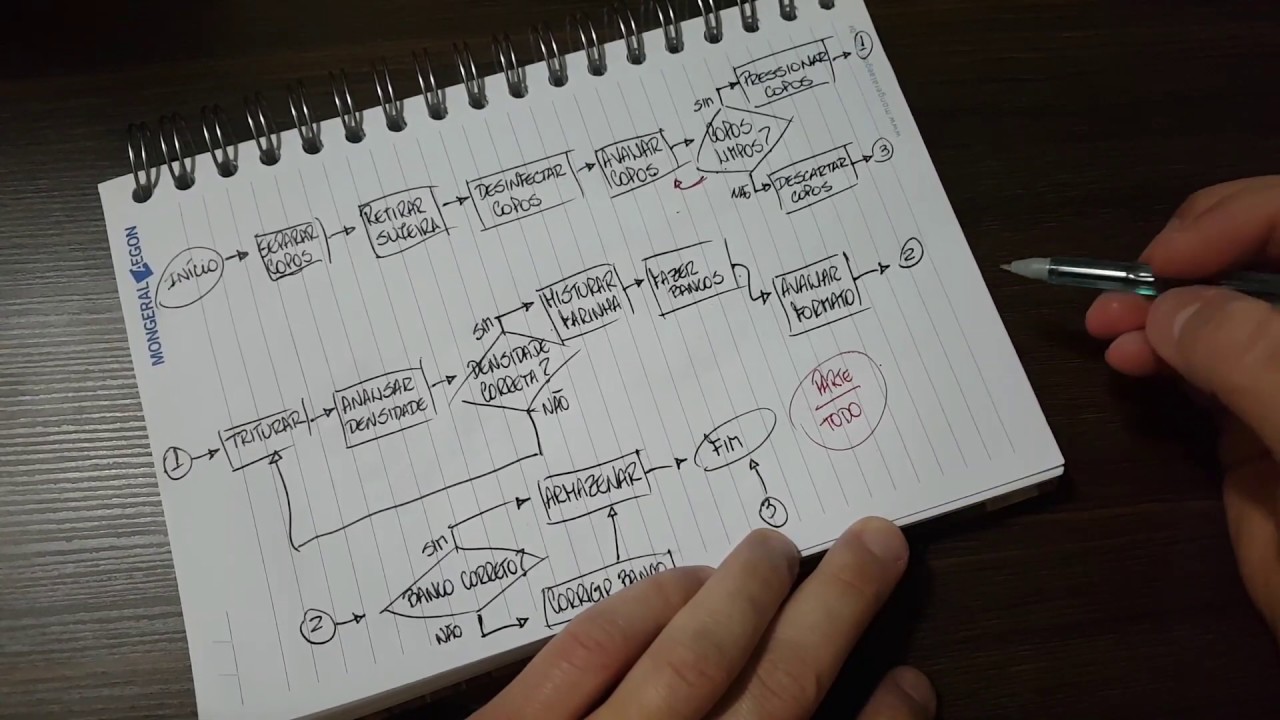 MONGERAL AEGON
INÍCIO
SEPARAR
COPOS
RETIRAR
SUJEIRA
DESINFECTAR
COPOS
AVALIAR
COPOS
COPOS
LIMPOS?
SIM
PRESSIONAR
COPOS
1
NÃO
DESCARTAR
COPOS
3
1
TRITURAR
ANALISAR
DENSIDADE
DENSIDADE
CORRETA?
SIM
MISTURAR
FARINHA
FAZER
BANCOS
AVALIAR
FORMATO
2
NÃO
2
BANCO CORRETO?
SIM
ARMAZENAR
FIM
3
NÃO
CORRIGIR BANCO
PARTE
TODO